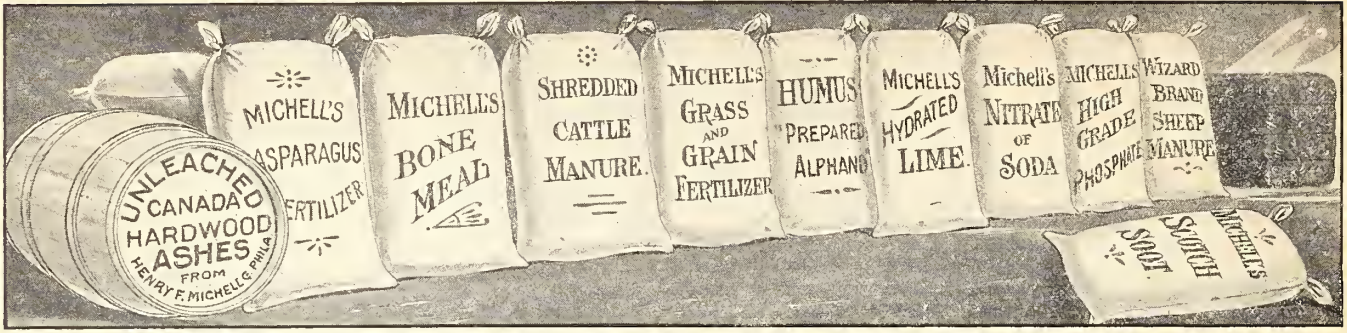 UNLEACHED
CANADA
HARDWOOD
ASHES
FROM
HENRY F. MICHELL CO PHILA
MICHELL'S
ASPARAGUS
FERTILIZER
MICHELL'S
BONE
MEAL
SHREDDED
CATTLE
MANURE.
MICHELL'S
GRASS
AND
GRAIN
FERTILIZER
HUMUS
"PREPARED
ALPHANO
MICHELL'S
HYDRATED
LIME.
Michell's
NITRATE
OF
SODA
MICHELL'S
HIGH
GRADE
PHOSPHATE
WIZARD
BRAND
SHEEP
MANURE
MICHELL'S
SCOTCH
SOOT